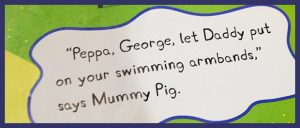 "Peppa, George, let Daddy put
on your swimming armbands,"
says Mummy Pig.